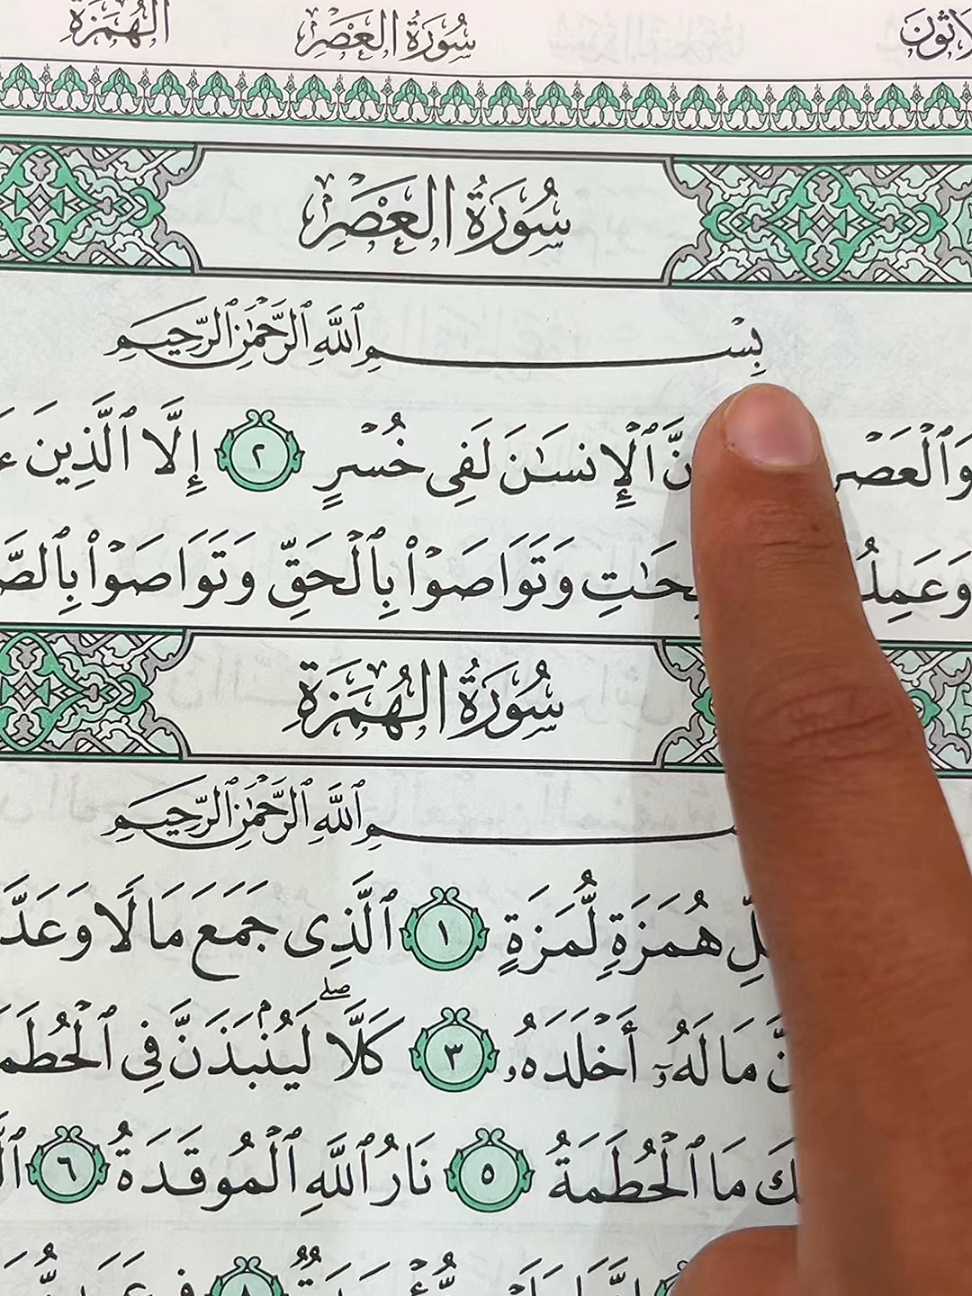 الهُمَزَة سُورَةُ العَصْرِ
سُورَةُ العَصْرِ
بِسْمِ ٱللَّهِ ٱلرَّحْمَٰنِ ٱلرَّحِيمِ
وَٱلْعَصْرِ ٱلْإِنسَٰنَ لَفِى خُسْرٍ ٢ إِلَّا ٱلَّذِينَ
وَتَوَاصَوْا۟ بِٱلْحَقِّ وَتَوَاصَوْا۟
سُورَةُ الهُمَزَةِ
ٱللَّهِ ٱلرَّحْمَٰنِ ٱلرَّحِيمِ
هُمَزَةٍ لُّمَزَةٍ ١ ٱلَّذِى جَمَعَ مَالًا
مَالَهُۥٓ أَخْلَدَهُۥ ٣ كَلَّا ۖ لَيُنۢبَذَنَّ فِى
مَا ٱلْحُطَمَةُ ٥ نَارُ ٱللَّهِ ٱلْمُوقَدَةُ ٦